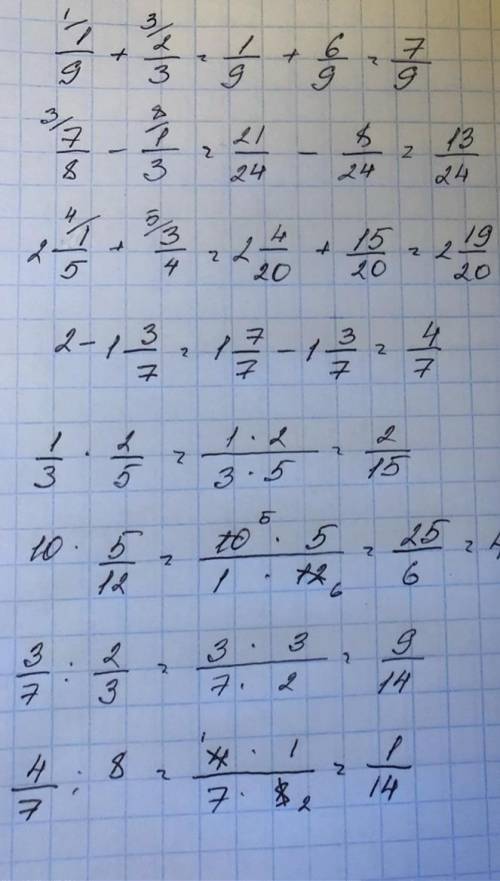 1/ 1/9 + 3/ 2/3 = 1/9 + 6/9 = 7/9
3/ 7/8 - 8/ 1/3 = 21/24 - 8/24 = 13/24
2 4/ 1/5 + 5/ 3/4 = 2 4/20 + 15/20 = 2 19/20
2 - 1 3/7 = 1 7/7 - 1 3/7 = 4/7
1/3 · 2/5 = (1 · 2)/(3 · 5) = 2/15
10 · 5/12 = (10 5 · 5)/(1 · 12 6) = 25/6 =
3/7 : 2/3 = (3 · 3)/(7 · 2) = 9/14
4/7 : 8 = (1 4 · 1)/(7 · 8 2) = 1/14